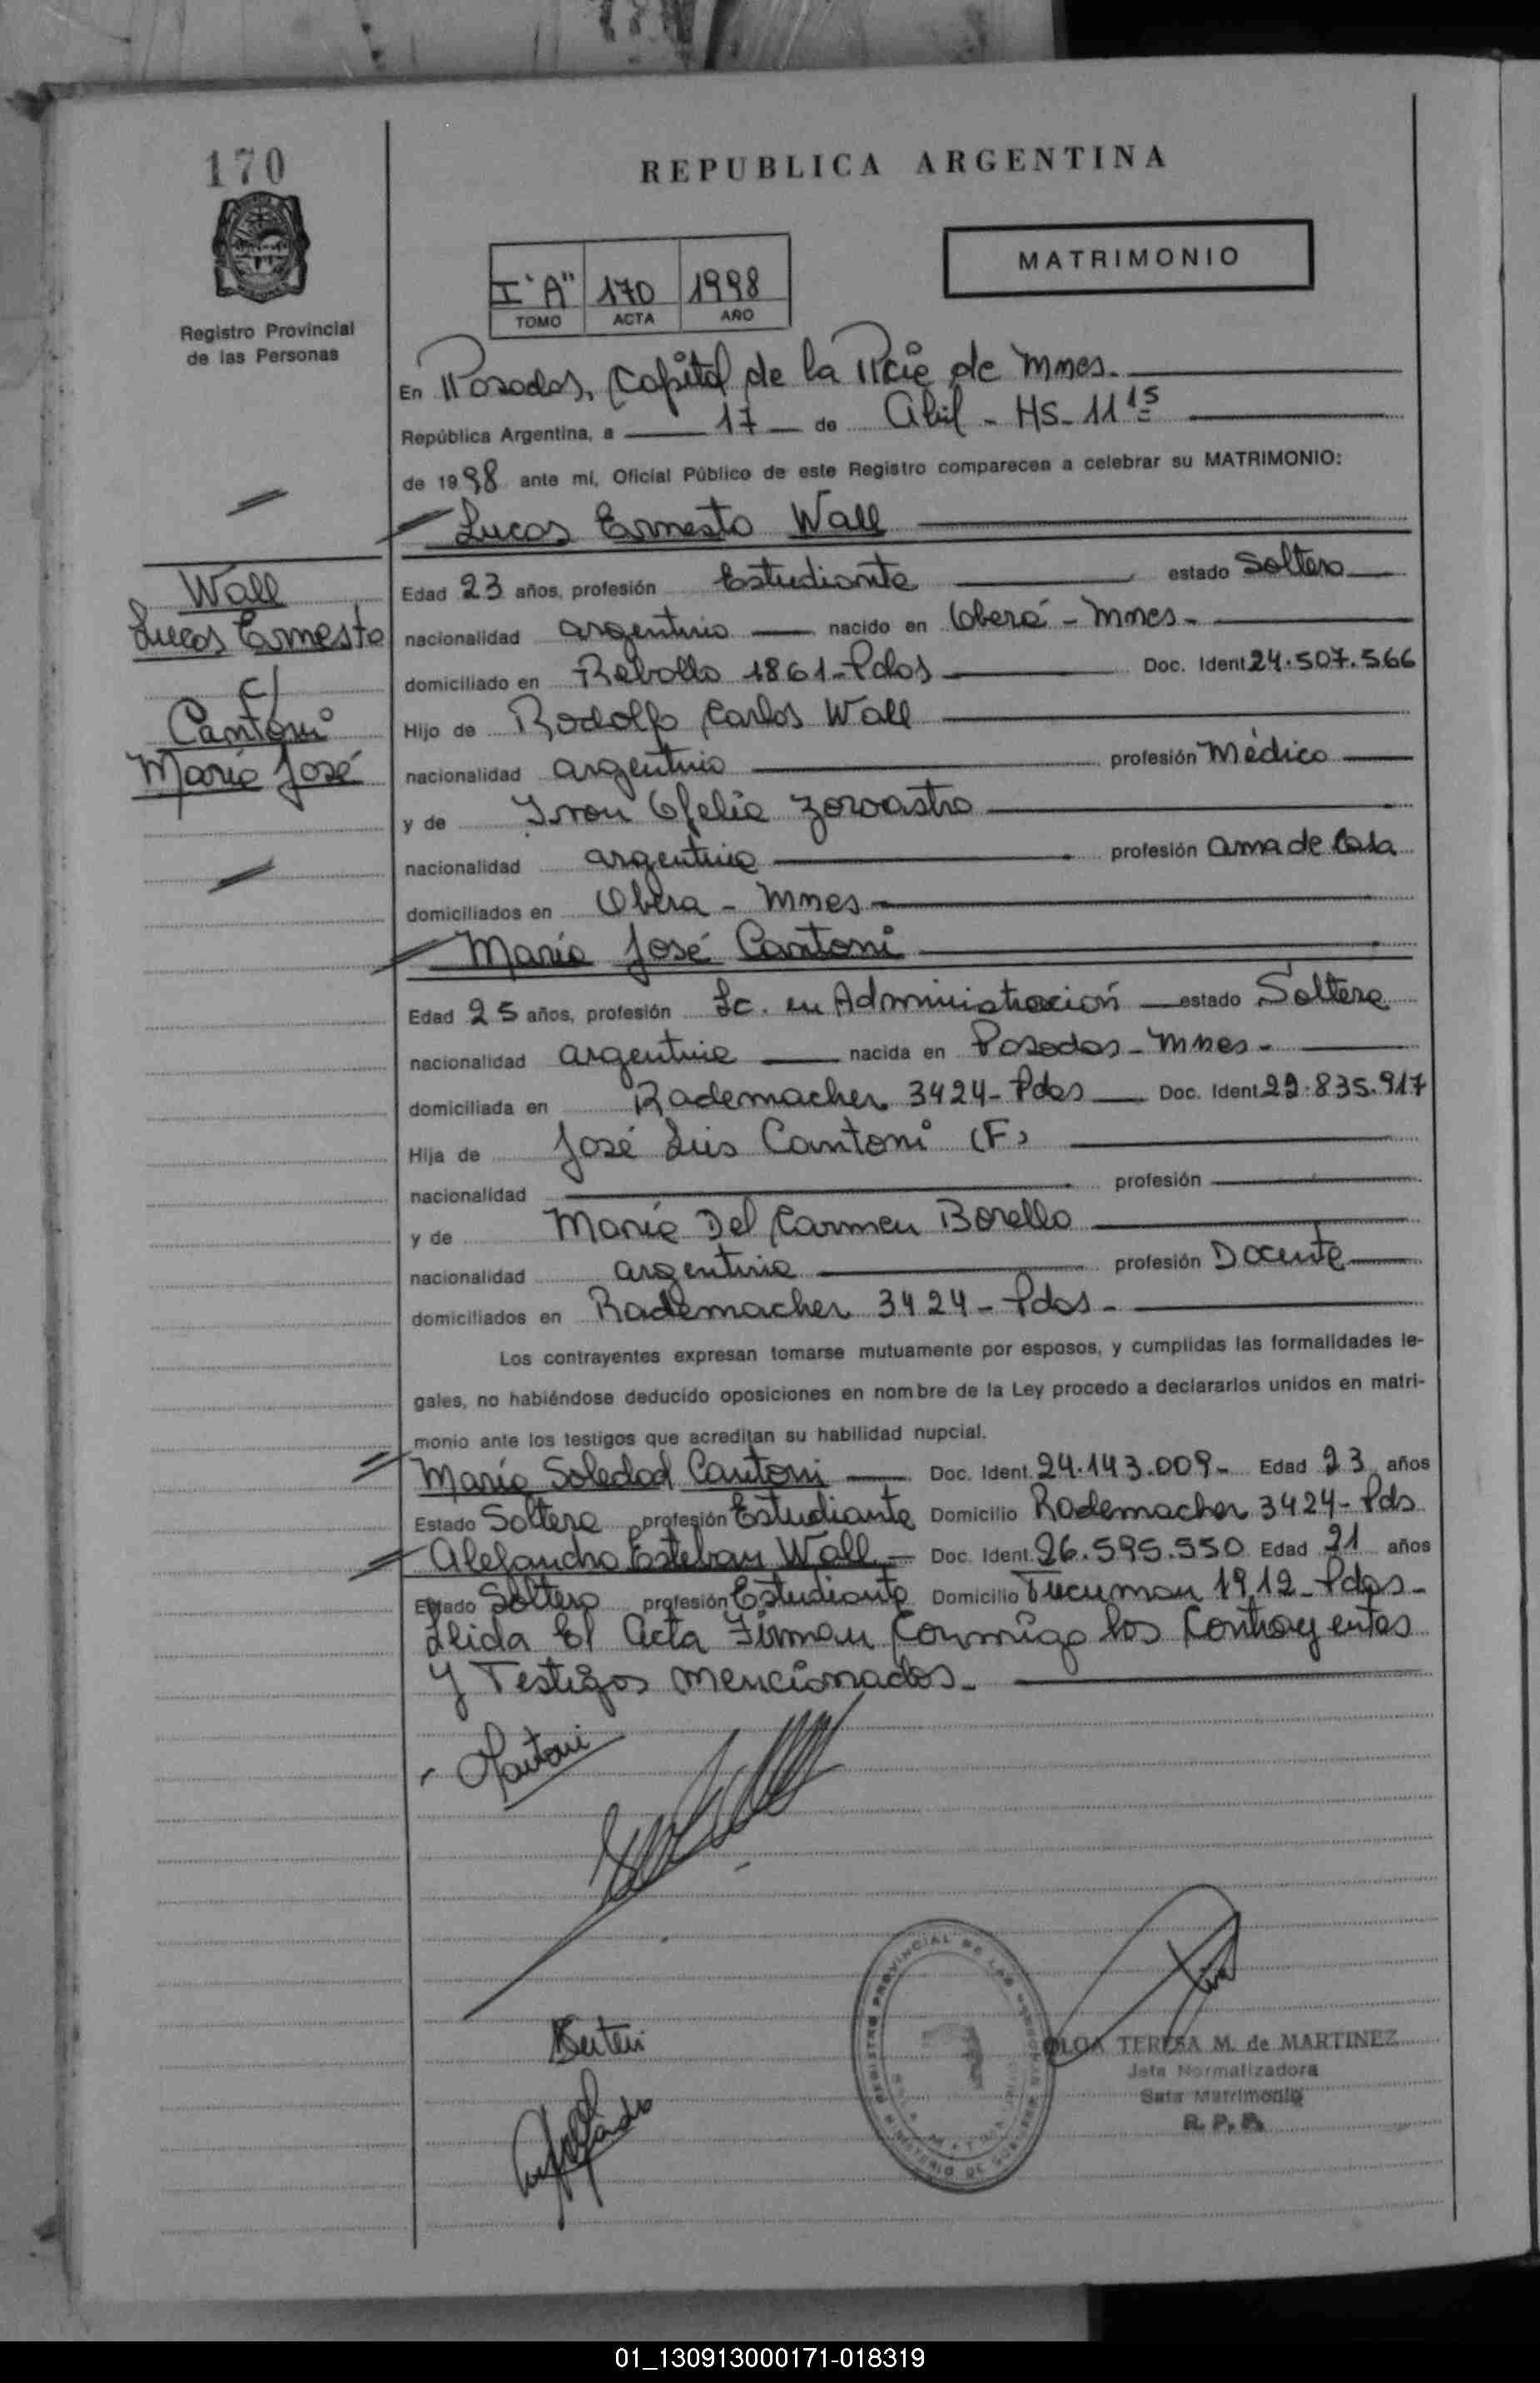 170
REPUBLICA ARGENTINA
MATRIMONIO
I "A" 170 1998
TOMO ACTA AÑO
Registro Provincial
de las Personas
En Posadas, Capital de la Pcie de Mnes.
República Argentina, a 17 de Abril - HS. 11 15
de 1998 ante mí, Oficial Público de este Registro comparecen a celebrar su MATRIMONIO:
Lucas Ernesto Wall
Wall
Lucas Ernesto
c/
Cantoni
María José
Edad 23 años, profesión Estudiante estado Soltero
nacionalidad argentino nacido en Oberá - Mnes -
domiciliado en Rebollo 1861 - Pdas Doc. Ident 24.507.566
Hijo de Rodolfo Carlos Wall
nacionalidad argentino profesión Médico
y de Ofelia Zoroastro
nacionalidad argentina profesión ama de Casa
domiciliados en Obera - Mnes
María José Cantoni
Edad 25 años, profesión Lc. en Administración estado Soltera
nacionalidad argentina nacida en Posadas - Mnes -
domiciliada en Rademacher 3424 - Pdas Doc. Ident 22.835.917
Hija de José Luis Cantoni (F)
nacionalidad profesión
y de María Del Carmen Borello
nacionalidad argentina profesión Docente
domiciliados en Rademacher 3424 - Pdas -
Los contrayentes expresan tomarse mutuamente por esposos, y cumplidas las formalidades le-
gales, no habiéndose deducido oposiciones en nombre de la Ley procedo a declararlos unidos en matri-
monio ante los testigos que acreditan su habilidad nupcial.
María Soledad Cantoni Doc. Ident. 24.143.009 - Edad 23 años
Estado Soltera profesión Estudiante Domicilio Rademacher 3424 - Pds
Alejandro Esteban Wall Doc. Ident. 26.595.550 Edad 21 años
Estado Soltero profesión Estudiante Domicilio Tucuman 1912 - Pdas -
Leida El Acta Firman Conmigo los Contrayentes
y Testigos mencionados -
Cantoni
REGISTRO PROVINCIAL DE LAS PERSONAS
MINISTERIO DE GOBIERNO
OLGA TERESA M. de MARTINEZ
Jefa Normalizadora
Sala Matrimonio
R. P. P.
01_130913000171-018319